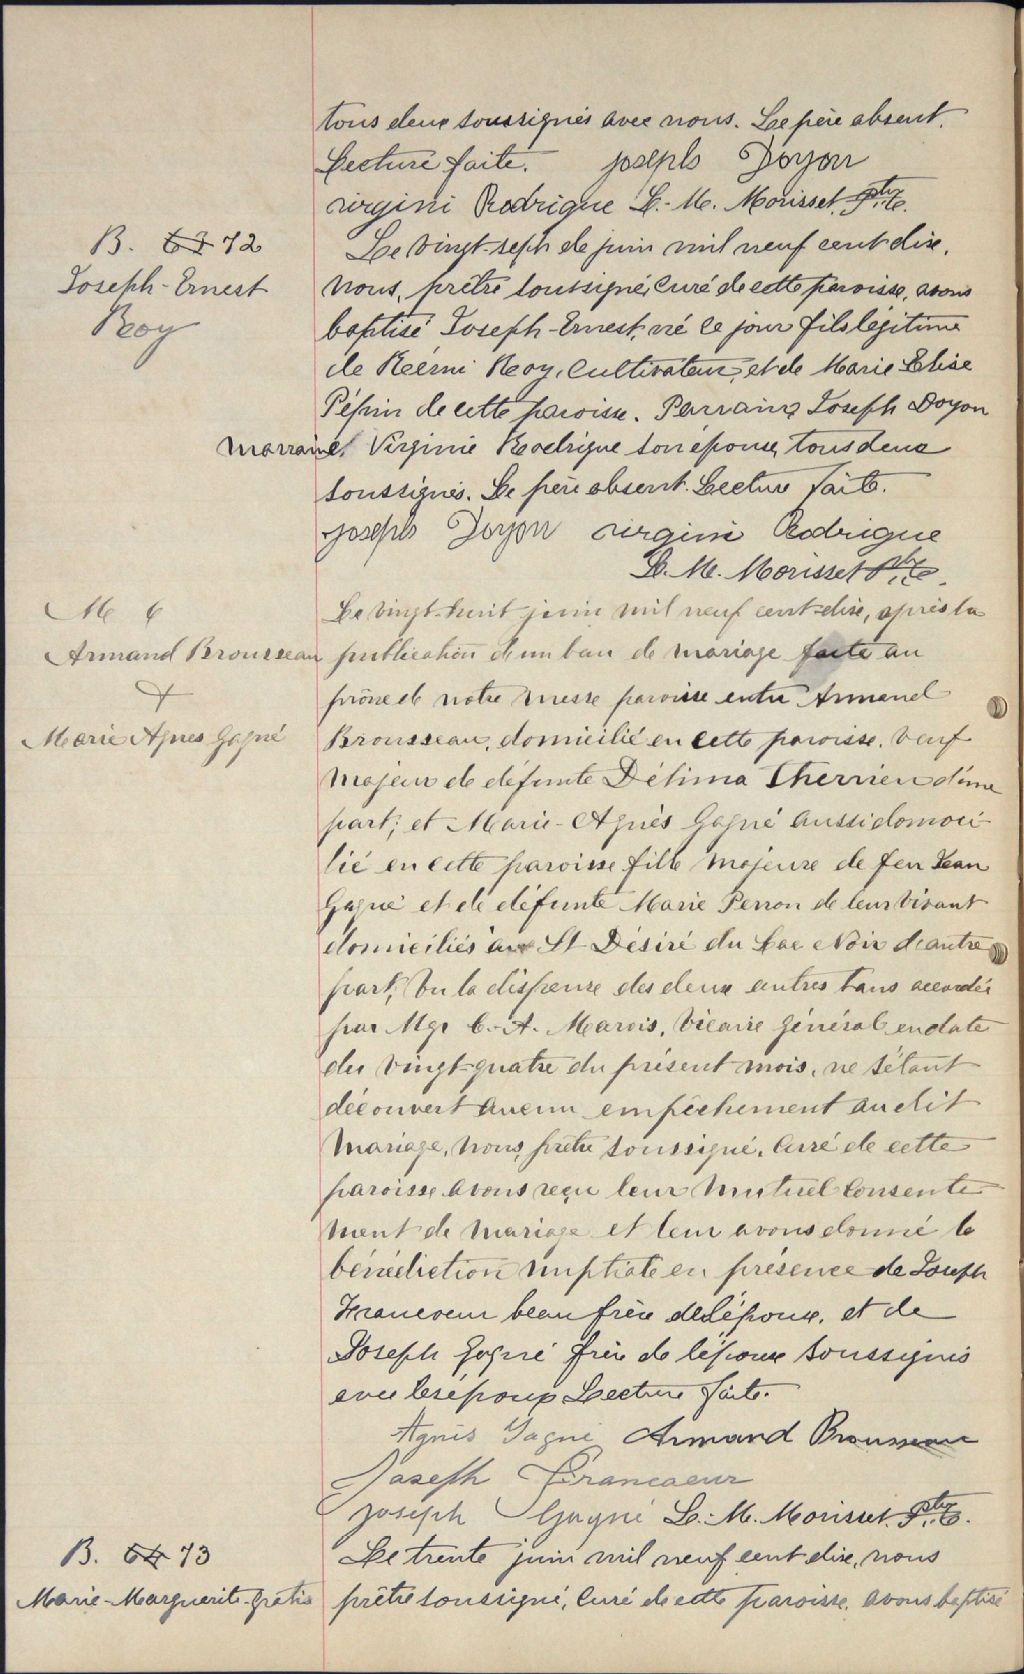 tous deux soussignés avec nous. Le père absent.
Lecture faite. Joseph Doyon
virgini Rodrigue L.-M. Morisset, Ptre C.
B. 63 72
Joseph-Ernest
Roy
Le vingt-sept de juin mil neuf cent dix,
nous, prêtre soussigné, curé de cette paroisse, avons
baptisé Joseph-Ernest, né ce jour fils légitime
de Rémi Roy, cultivateur, et de Marie Elise
Pépin de cette paroisse. Parrain Joseph Doyon
marraine, Virginie Rodrigue son épouse, tous deux
soussignés. Le père absent. Lecture faite.
Joseph Doyon virgini Rodrigue
L. M. Morisset Ptre C.
M 6
Armand Brousseau
&
Marie Agnes Gagné
Le vingt-huit juin mil neuf cent-dix, après la
publication d'un ban de mariage faite au
prône de notre messe paroisse entre Armand
Brousseau, domicilié en cette paroisse, veuf
majeur de défunte Délima Therrien d'une
part; et Marie-Agnès Gagné aussi domoci-
lié en cette paroisse fille majeure de feu Jean
Gagné et de défunte Marie Perron de leur vivant
domiciliés à St Désiré du Lac Noir d'autre
part; Vu la dispense des deux autres bans accordée
par Mgr C.-A. Marois, Vicaire Général en date
du vingt-quatre du présent mois, ne s'étant
découvert aucun empêchement au dit
mariage, nous, prêtre soussigné, curé de cette
paroisse avons reçu leur mutuel consente-
ment de mariage et leur avons donné la
bénédiction nuptiale en présence de Joseph
Francoeur beau frère de l'épouse, et de
Joseph Gagné frère de l'épouse soussignés
avec les époux Lecture faite.
Agnès Gagné Armand Brousseau
Joseph Francoeur
Joseph Gagné L.-M. Morisset, Ptre C.
B. 64 73
Marie-Marguerite-gratis
Le trente juin mil neuf cent dix, nous
prêtre soussigné, curé de cette paroisse, avons baptisé